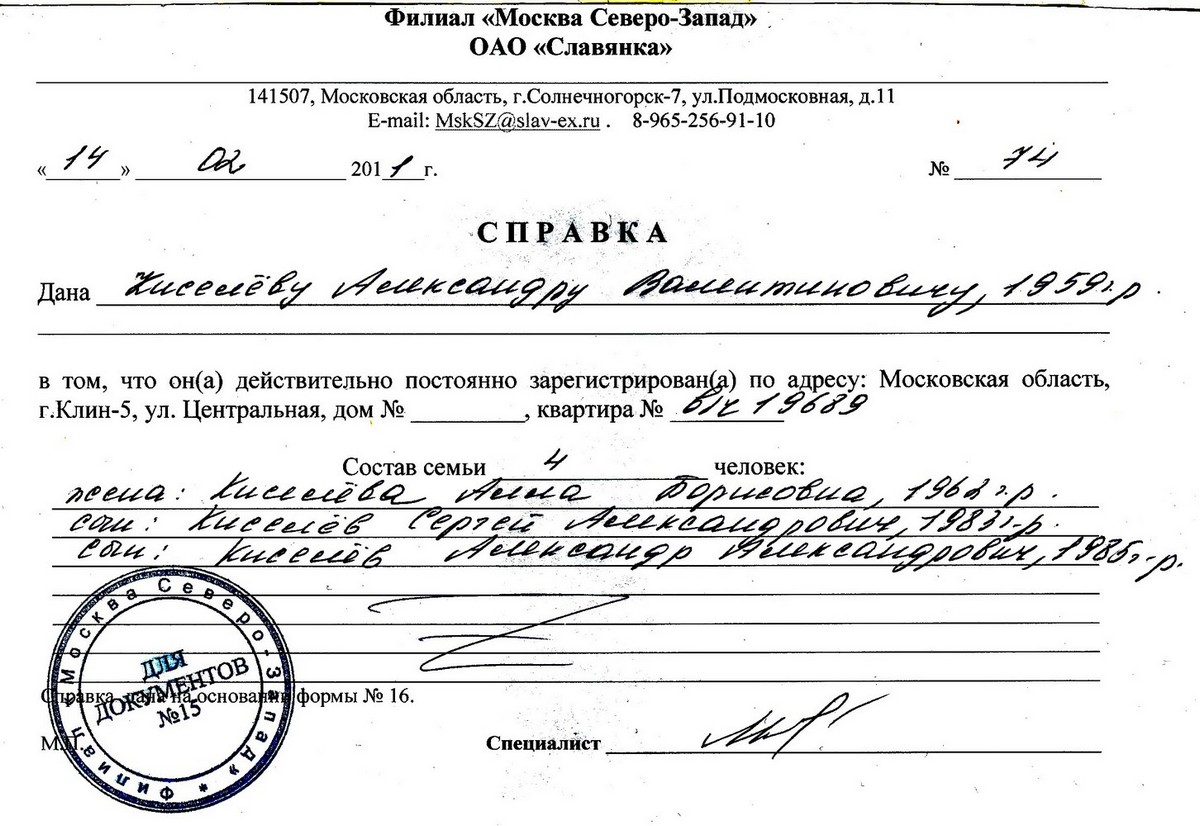 Филиал «Москва Северо-Запад»
ОАО «Славянка»
141507, Московская область, г.Солнечногорск-7, ул.Подмосковная, д.11
E-mail: MskSZ@slav-ex.ru . 8-965-256-91-10
«14» 02 2011 г. № 74
СПРАВКА
Дана Киселёву Александру Валентиновичу, 1959г.р.
в том, что он(а) действительно постоянно зарегистрирован(а) по адресу: Московская область,
г.Клин-5, ул. Центральная, дом № , квартира № в/ч 19689
Состав семьи 4 человек:
жена: Киселёва Алла Борисовна, 1962г.р.
сын: Киселёв Сергей Александрович, 1983г.р.
сын: Киселёв Александр Александрович, 1985г.р.
Справка дана на основании формы № 16.
М.П. Специалист
Филиал «Москва Северо-Запад» *
ДЛЯ
ДОКУМЕНТОВ
№15